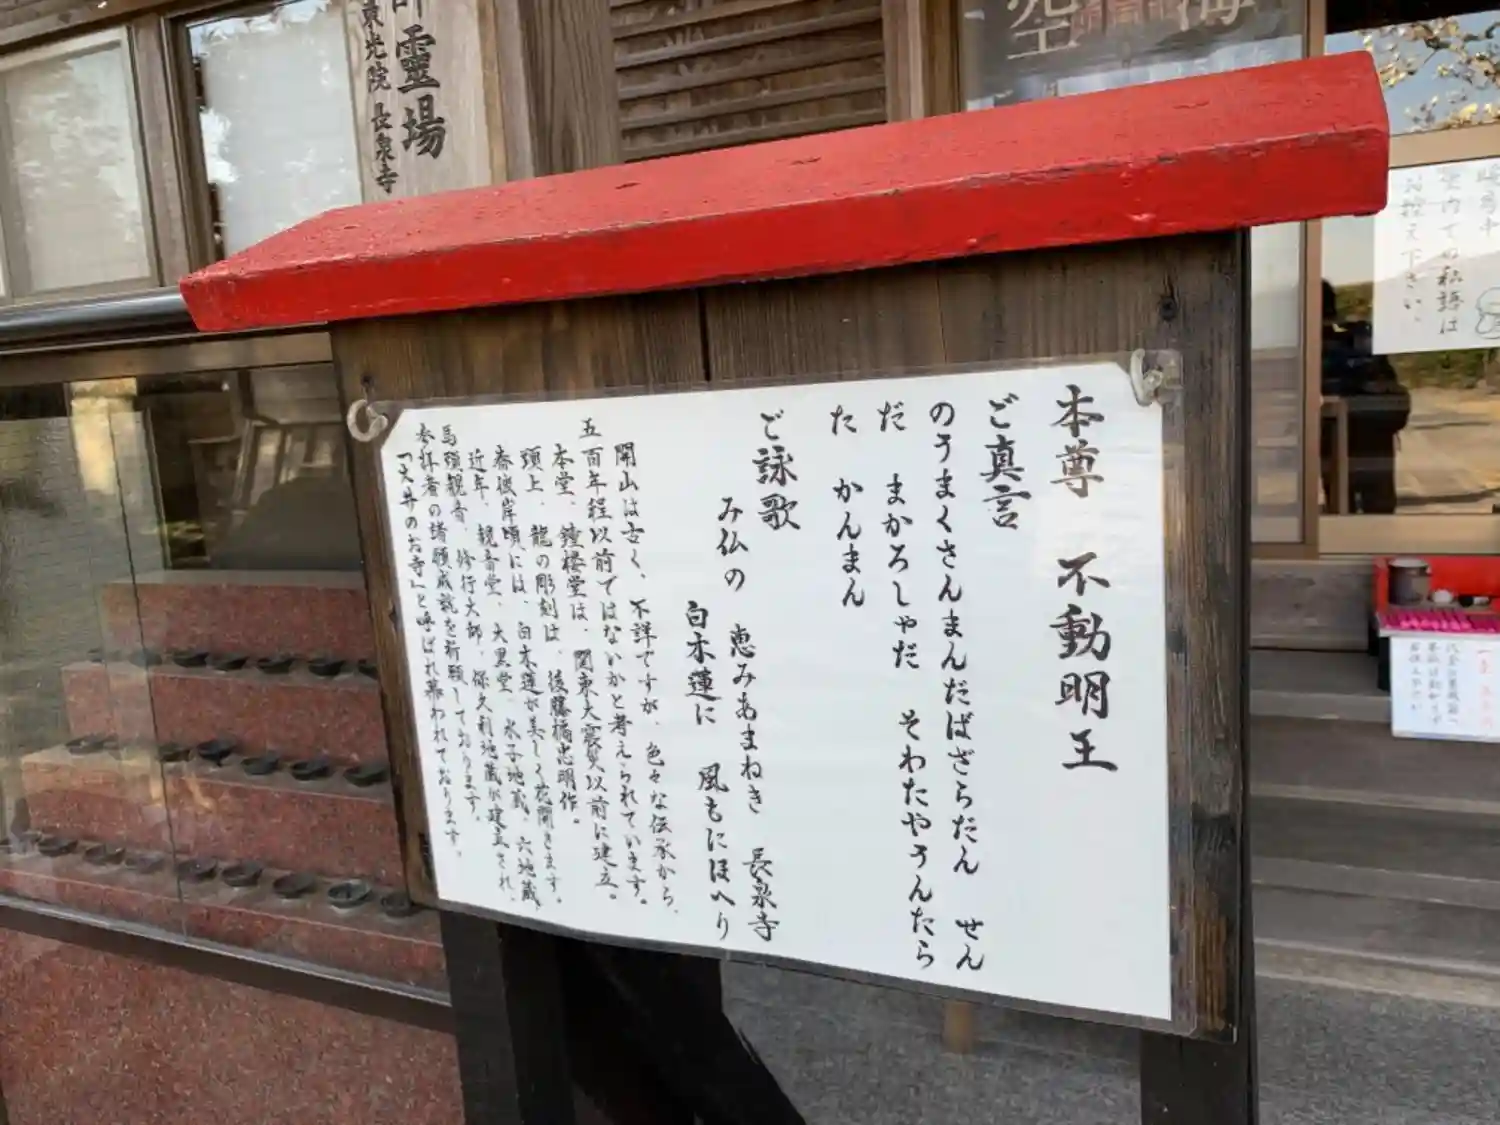 本尊 不動明王
ご真言
のうまくさんまんだばざらだん せん
だ まかろしゃだ そわたやうんたら
た かんまん
ご詠歌
み仏の 恵みあまねき 長泉寺
白木蓮に 風もにほへり
開山は古く、不詳ですが、色々な伝承から、
五百年程以前ではないかと考えられています。
本堂、鐘楼堂は、関東大震災以前に建立。
頭上、龍の彫刻は、後藤橘忠明作。
春彼岸頃には、白木蓮が美しく花開きます。
近年、観音堂、大黒堂、水子地蔵、六地蔵、
馬頭観音、修行大師、保久利地蔵が建立され、
参拝者の諸願成就を祈願しております。
「天井のお寺」と呼ばれ慕われております。
霊場
東光院 長泉寺
空
海
堂内での私語は
お控え下さい。